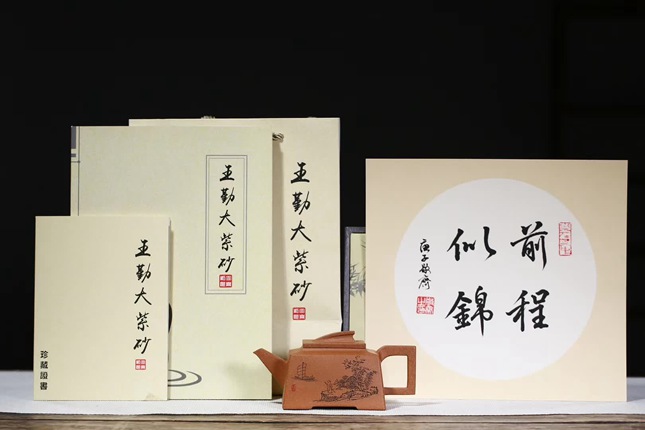 王勤大紫砂
珍藏證書
王勤大紫砂
王勤大紫砂
前程
似錦
庚子敬齋